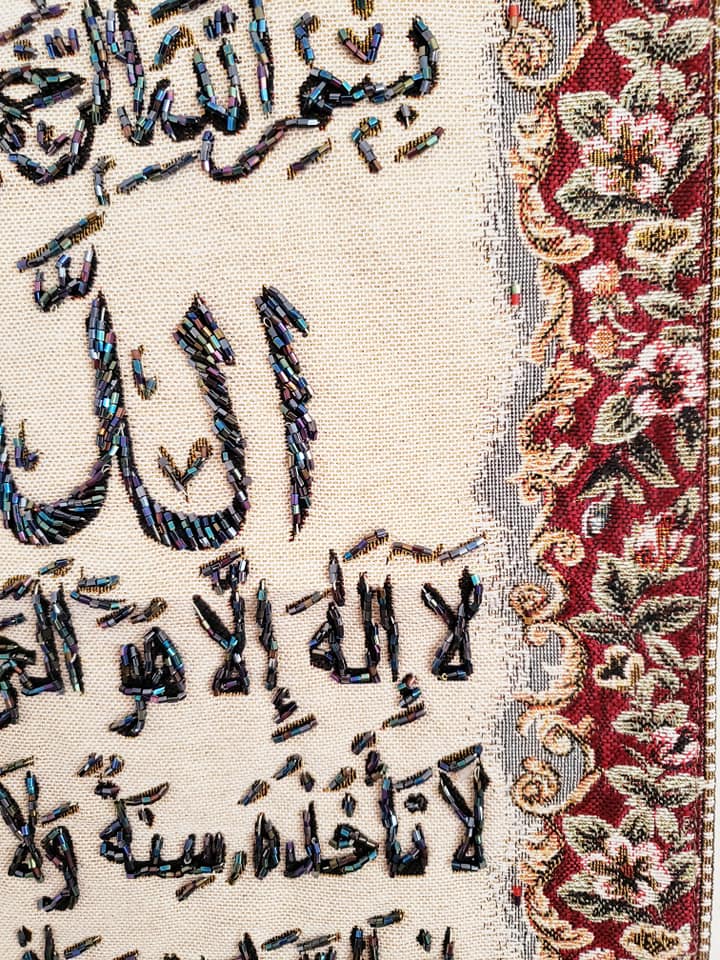 بِسْمِ اللَّهِ
اللَّهُ
لَا إِلَٰهَ إِلَّا هُوَ
لَا تَأْخُذُهُ سِنَةٌ وَلَا